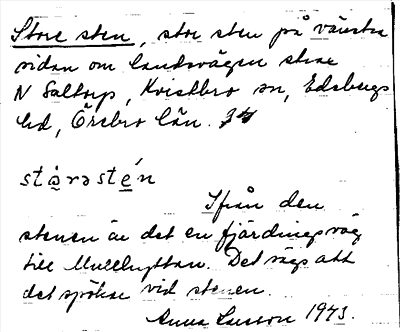 Store sten, stor sten på vänstra
sidan om landsvägen strax
N Saltorp, Kvistbro sn, Edsbergs
hd, Örebro län.
stɷ̀rəste´n
Ifrån den
stenen är det en fjärdingsväg
till Mullhyttan. Det sägs att
det spökar vid stenen.
Anna Larsson 1943.